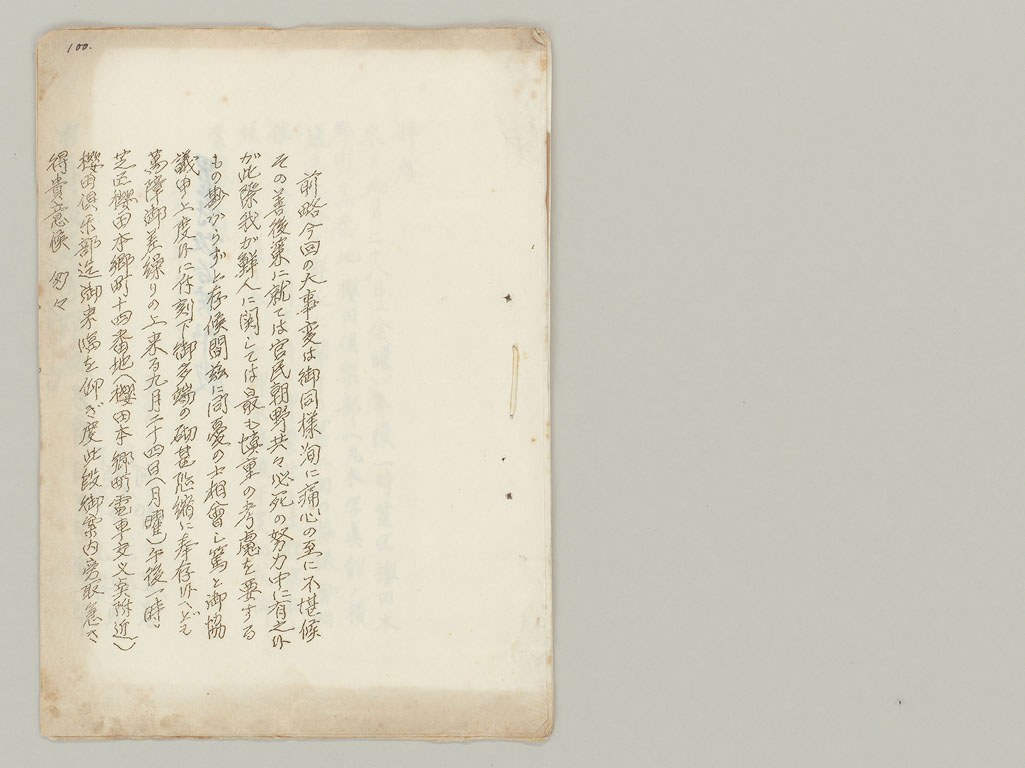 100.
前略今回の大事変は御同様洵に痛心の至に不堪候
その善後策に就ては官民朝野共々必死の努力中に有之候
が此際我が鮮人に関しては最も慎重の考慮を要する
もの尠からずと存候間茲に同憂の士相會し篤と御協
議申上度候に付刻下御多端の砌甚恐縮に奉存候へども
萬障御差繰りの上来る九月二十四日(月曜)午後一時
芝区櫻田本郷町十四番地(櫻田本郷町電車交叉点附近)
櫻田倶楽部迄御来臨を仰ぎ度此段御案内旁取急ぎ
得貴意候 匆々